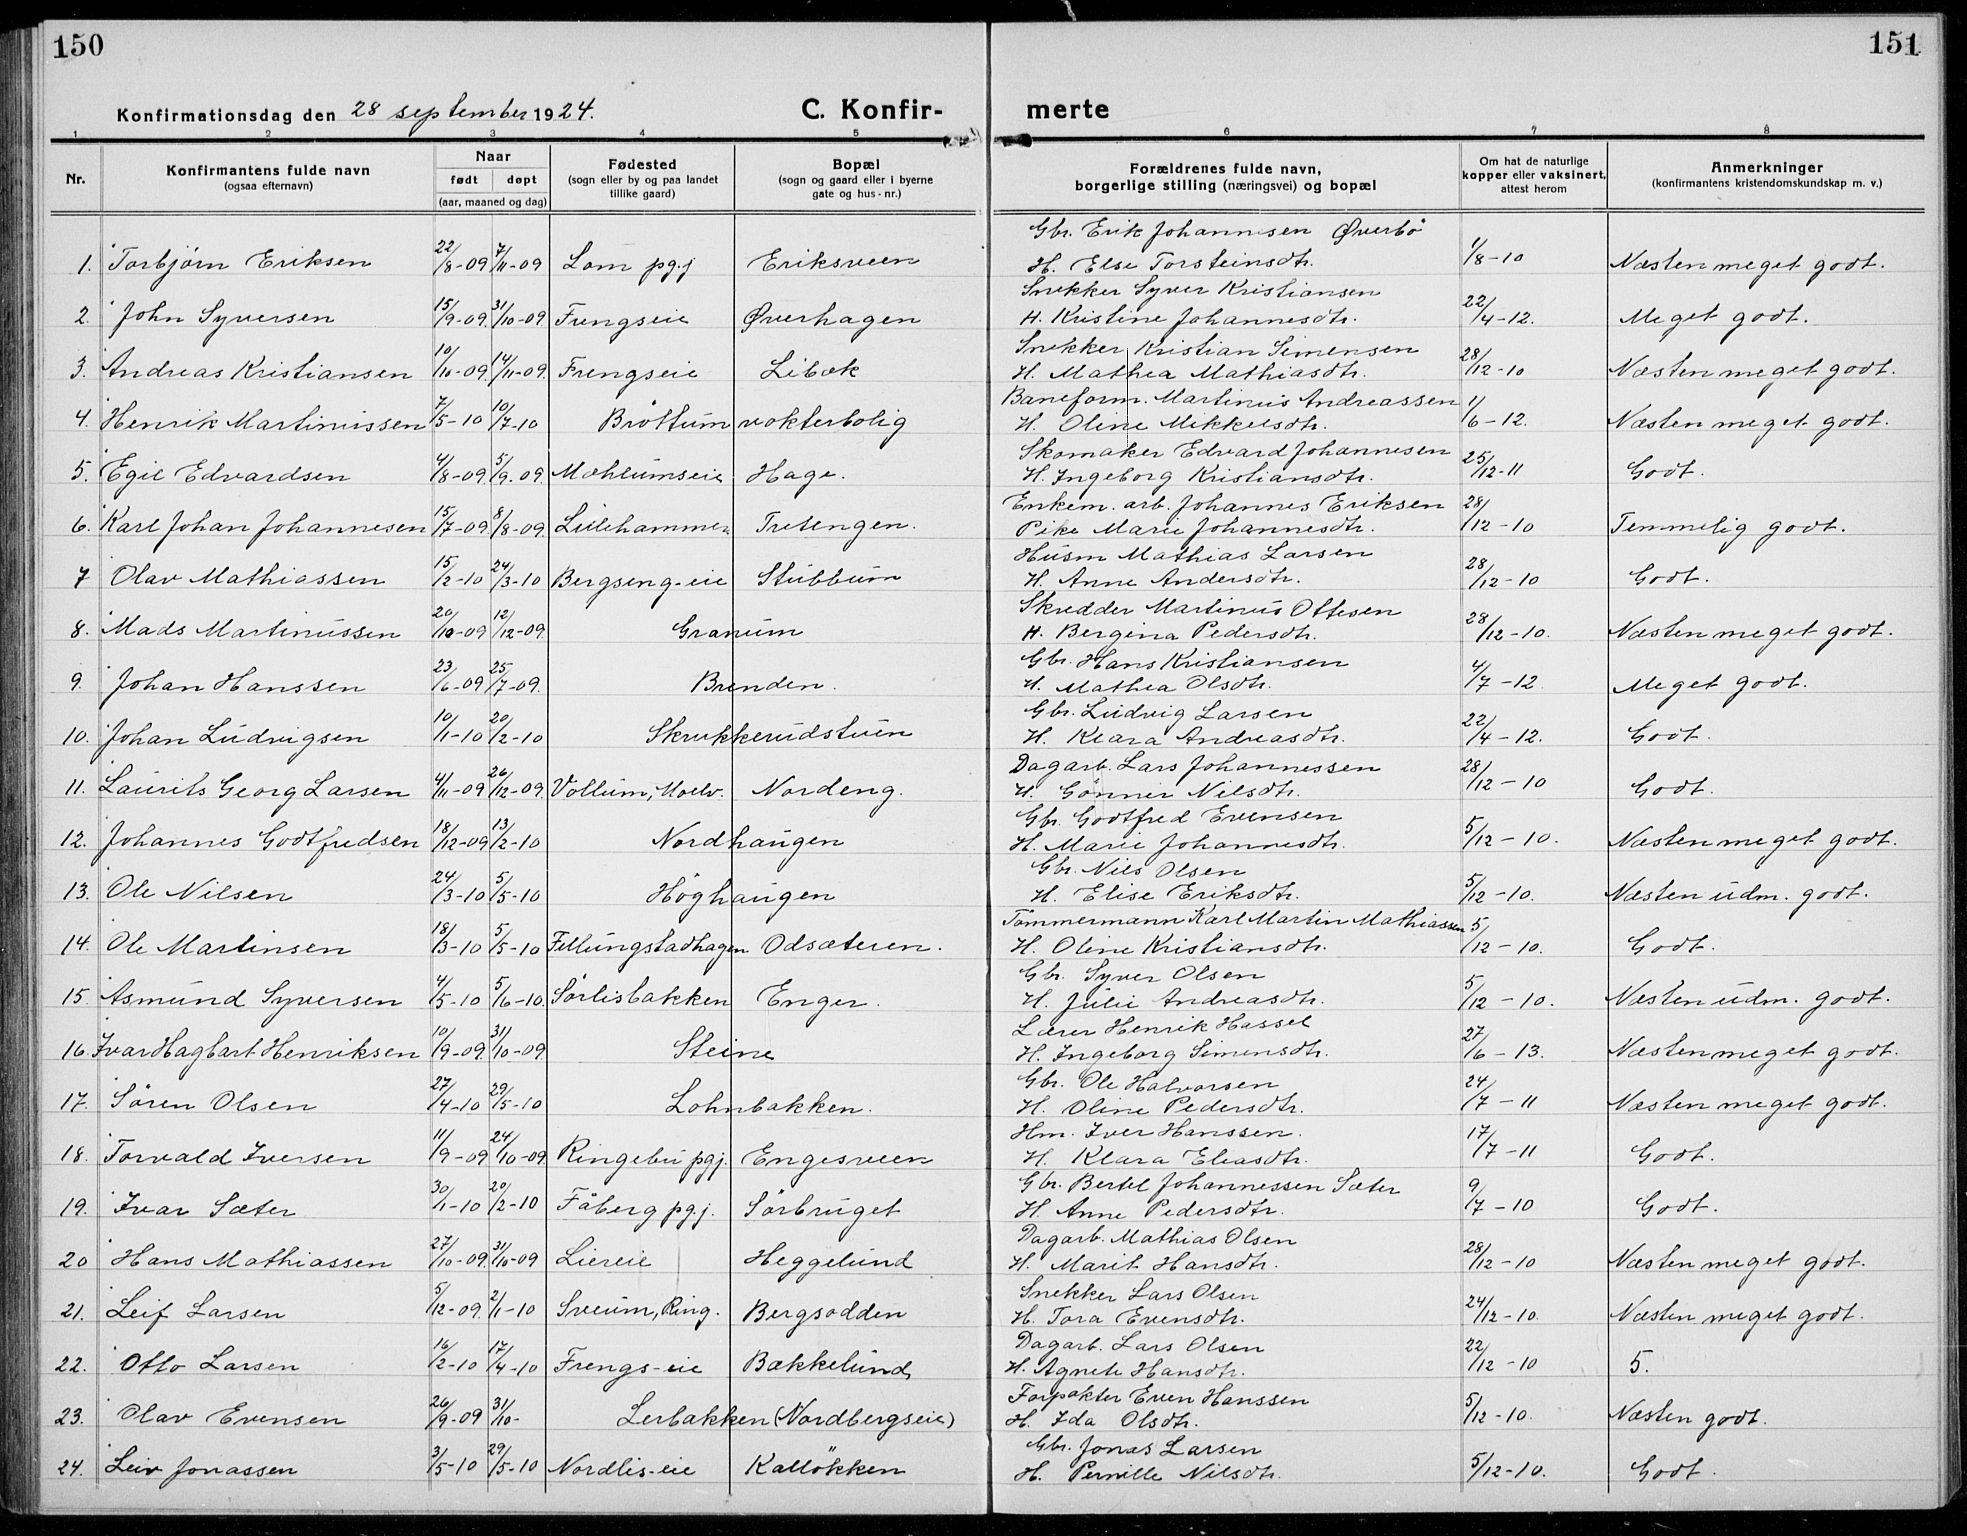 150
151
Konfirmationsdag den 28 september 1924.
C. Konfir-
merte
1 2 3 4 5 6 7 8
Nr.
Konfirmantens fulde navn
(ogsaa efternavn)
Naar
født døpt
(aar, maaned og dag)
Fødested
(sogn eller by og paa landet
tillike gaard)
Bopæl
(sogn og gaard eller i byerne
gate og hus-nr.)
Forældrenes fulde navn,
borgerlige stilling (næringsvei) og bopæl
Om hat de naturlige
kopper eller vaksinert,
attest herom
Anmerkninger
(konfirmantens kristendomskundskap m. v.)
Gbr. Erik Johannesen Øverbö
1. Torbjørn Eriksen 22/8-09 7/11-09 Lom pgj Eriksveen H. Else Torsteinsdtr. 1/8-10 Næsten meget godt.
Snekker Syver Kristiansen
2. John Syversen 15/9-09. 31/10-09 Frengseie Øverhagen H. Kristine Johannesdtr. 22/4-12. Meget godt.
Snekker Kristian Simensen
3. Andreas Kristiansen 10/10-09. 14/11-09. Frengseie Libæk H. Mathea Mathiasdtr. 28/12-10 Næsten meget godt.
Baneform. Martinus Andreassen
4. Henrik Martinussen 7/5-10 10/7-10 Bröttum vokterbolig H. Oline Mikkelsdtr. 1/6-12. Næsten meget godt.
Skomaker Edvard Johannesen
5. Egil Edvardsen 4/8-09 5/9.09 Mæhlumseie Hage. H. Ingeborg Kristiansdtr. 25/12-11 Godt.
Enkem. arb. Johannes Eriksen
6. Karl Johan Johannesen 15/7-09 8/8-09 Lillehammer Tretengen. Pike Marie Johannesdtr. 28/12-10 Temmelig godt.
Husm Mathias Larsen
7 Olav Mathiassen 15/2-10 24/3-10 Bergseng-eie Stubbum H. Anne Andersdtr. 28/12-10 Godt.
Skredder Martinus Ottesen
8. Mads Martinussen 20/10-09 12/12-09. Granum H. Bergina Pedersdtr. 28/12-10. Næsten meget godt.
Gbr. Hans Kristiansen
9. Johan Hanssen 23/6-09 25/7-09. Brenden. H. Mathea Olsdtr. 4/7-12 Meget godt.
Gbr. Ludvig Larsen
10. Johan Ludvigsen 10/1-10 20/2-10 Skrukkerudstuen H. Klara Andreasdtr. 22/4-12. Godt.
Dagarb. Lars Johannessen
11. Laurits Georg Larsen 4/11-09 26/12-09. Vollum, Moelv. Nordeng. H. Gönner Nilsdtr. 28/12-10 Godt.
Gbr. Godtfred Evensen
12. Johannes Godtfredsen 18/12-09 13/2-10 Nordhaugen H. Marie Johannesdtr. 5/12-10. Næsten meget godt.
Gbr. Nils Olsen
13. Ole Nilsen 24/3-10 5/5-10 Höghaugen H. Elise Eriksdtr. 5/12-10. Næsten udm. godt.
Tömmermann Karl Martin Mathiassen
14. Ole Martinsen 18/3-10 5/5-10 Fellungstadhagen Odsæteren. H. Oline Kristiansdtr. 5/12-10. Godt.
Gbr. Syver Olsen
15. Asmund Syversen 4/5-10 5/6-10. Sörlisbakken Enger. H. Julie Andreasdtr. 5/12-10. Næsten udm. godt.
Lærer Henrik Hassel
16. Ivar Hagbart Henriksen 10/9-09. 31/10-09 Steine H. Ingeborg Simensdtr. 27/6-13. Næsten meget godt.
Gbr. Ole Halvorsen
17. Sören Olsen 27/4-10 29/5-10 Lohnbakken. H. Oline Pedersdtr. 24/7-11 Næsten meget godt.
Hm. Iver Hanssen.
18. Torvald Iversen 11/9-09 24/10-09. Ringebu pgj. Engesveen H. Klara Eliasdtr. 17/7-11 Godt.
Gbr. Bertel Johannessen Sæter
19. Ivar Sæter 30/1-10 20/2-10 Fåberg pgj. Sörbruget H. Anne Pedersdtr. 9/7-10 Godt.
Dagarb. Mathias Olsen
20 Hans Mathiassen 27/10-09. 31/10-09 Liereie Heggelund H. Marit Hansdtr. 28/12-10 Næsten meget godt.
Snekker Lars Olsen
21. Leif Larsen 5/12-09. 2/1-10 Sveum, Ring. Bergsodden H. Tora Evensdtr. 24/12-10. Næsten meget godt.
Dagarb. Lars Olsen
22. Otto Larsen 16/2-10 17/4-10 Frengs-eie Bækkelund H. Agnete Hansdtr. 22/12-10 5.
Forpakter Even Hanssen
23. Olav Evensen 26/9-09 31/10- Lerbakken (Nordbergseie) H. Ida Olsdtr. 5/12-10. Næsten godt.
Gbr. Jonas Larsen
24. Leiv Jonassen 3/5-10 29/5-10 Nordlis-eie Kallökken H. Pernille Nilsdtr. 5/12-10. Godt.